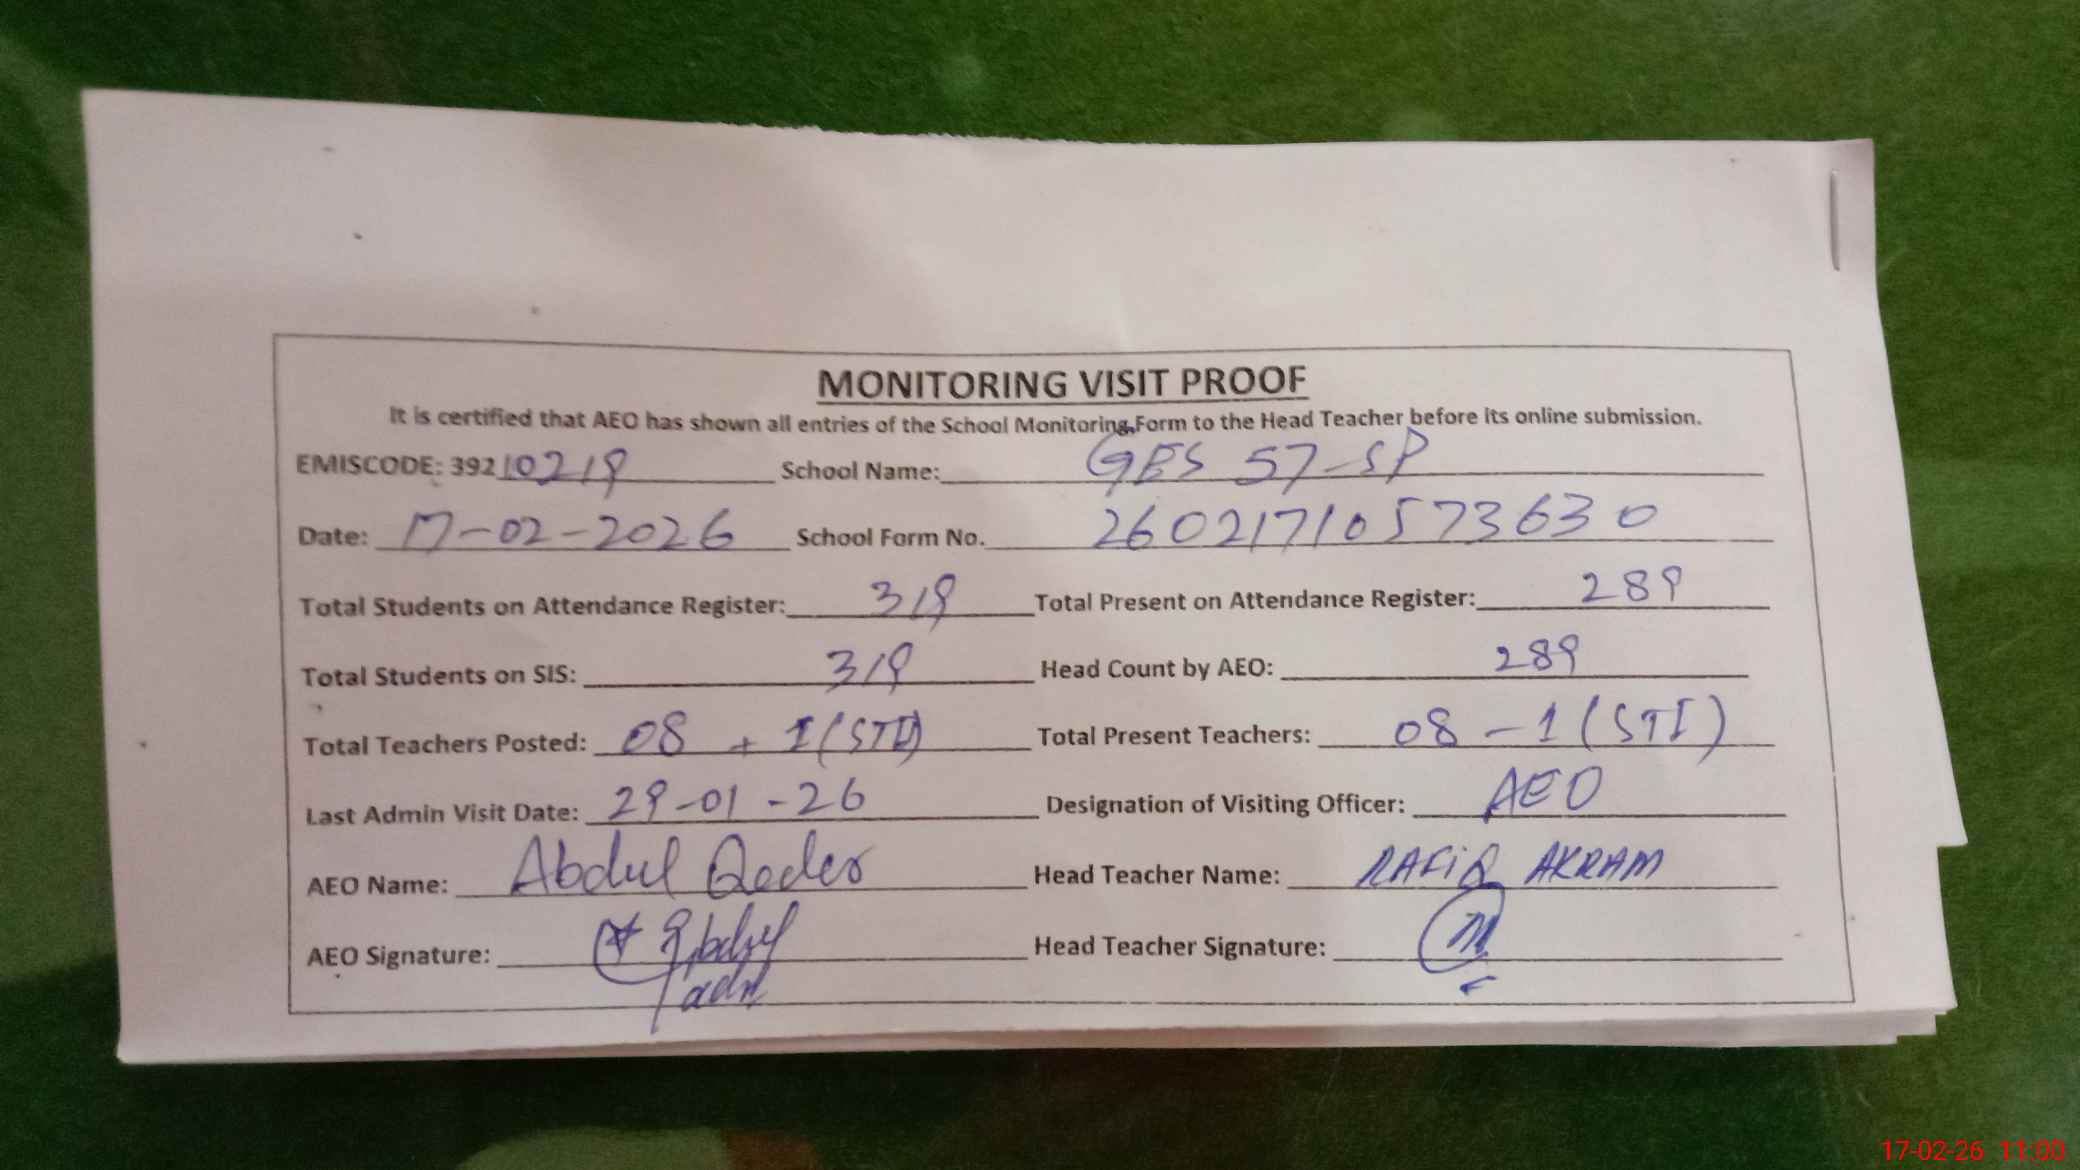 MONITORING VISIT PROOF
It is certified that AEO has shown all entries of the School Monitoring Form to the Head Teacher before its online submission.
EMISCODE: 39210219 School Name: GES 57-SP
Date: 17-02-2026 School Form No. 26021710573630
Total Students on Attendance Register: 319 Total Present on Attendance Register: 289
Total Students on SIS: 319 Head Count by AEO: 289
Total Teachers Posted: 08 + 1(STI) Total Present Teachers: 08 - 1 (STI)
Last Admin Visit Date: 29-01-26 Designation of Visiting Officer: AEO
AEO Name: Abdul Qader Head Teacher Name: RAFIQ AKRAM
AEO Signature: Head Teacher Signature:
17-02-26 11:00